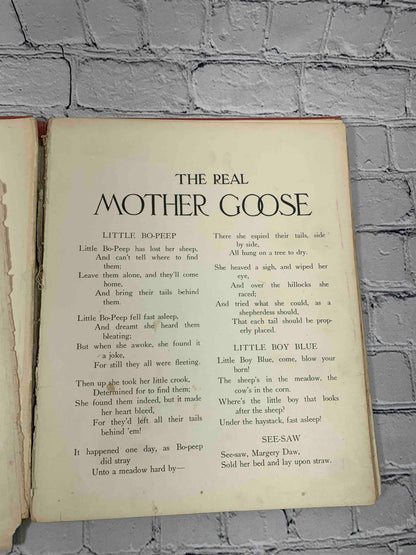 THE REAL
MOTHER GOOSE
LITTLE BO-PEEP
Little Bo-Peep has lost her sheep,
And can't tell where to find
them;
Leave them alone, and they'll come
home,
And bring their tails behind
them.
Little Bo-Peep fell fast asleep,
And dreamt she heard them
bleating;
But when she awoke, she found it
a joke,
For still they all were fleeting.
Then up she took her little crook,
Determined for to find them;
She found them indeed, but it made
her heart bleed,
For they'd left all their tails
behind 'em!
It happened one day, as Bo-peep
did stray
Unto a meadow hard by—
There she espied their tails, side
by side,
All hung on a tree to dry.
She heaved a sigh, and wiped her
eye,
And over the hillocks she
raced;
And tried what she could, as a
shepherdess should,
That each tail should be prop-
erly placed.
LITTLE BOY BLUE
Little Boy Blue, come, blow your
horn!
The sheep's in the meadow, the
cow's in the corn.
Where's the little boy that looks
after the sheep?
Under the haystack, fast asleep!
SEE-SAW
See-saw, Margery Daw,
Sold her bed and lay upon straw.